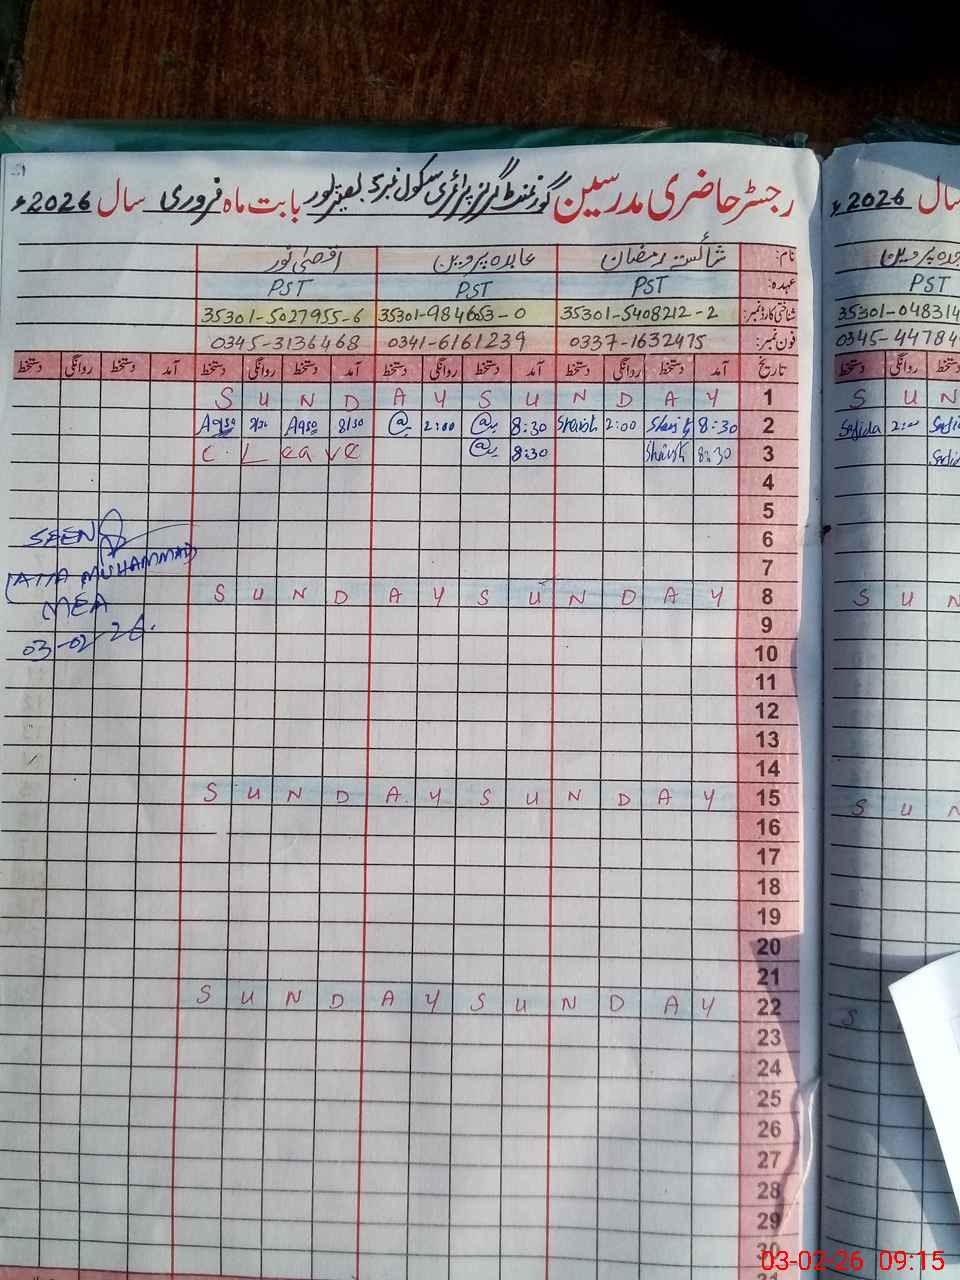 رجسٹر حاضری مدرسین گورنمنٹ گرلز پرائمری سکول نمبر 2 بصیر پور بابت ماہ فروری سال 2026ء
سال 2026ء
نام: شائستہ رمضان عابدہ پروین اقصیٰ نور
عہدہ: PST PST PST
شناختی کارڈ نمبر: 35301-5408212-2 35301-984653-0 35301-5027955-6
فون نمبر: 0337-1632475 0341-6161239 0345-3136468
تاریخ آمد دستخط روانگی دستخط آمد دستخط روانگی دستخط آمد دستخط روانگی دستخط آمد دستخط روانگی دستخط
S U N D A Y S U N D A Y 1
Aqsa 8/30 2:00 8:30 2:00 8:30 2
C. Leave 8:30 8:30 3
4
5
6
7
S U N D A Y S U N D A Y 8
9
10
11
12
13
14
S U N D A Y S U N D A Y 15
16
17
18
19
20
21
S U N D A Y S U N D A Y 22
23
24
25
26
27
28
29
30
31
SEEN
(ATTA MUHAMMAD
MEA
03-02-26.
پروین
PST
35301-048314
0345-44784
دستخط روانگی دستخط
S U N
Sajida 2:00
S U N
S U N
S
03-02-26 09:15